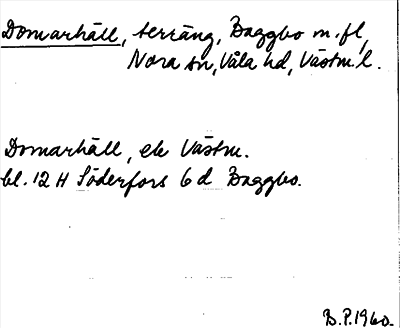 Domarhäll, terräng, Baggbo m.fl,
Nora sn, Våla hd, Västm. l.
Domarhäll, ek Västm.
bl. 12 H Söderfors 6 d Baggbo.
B.P. 1960.